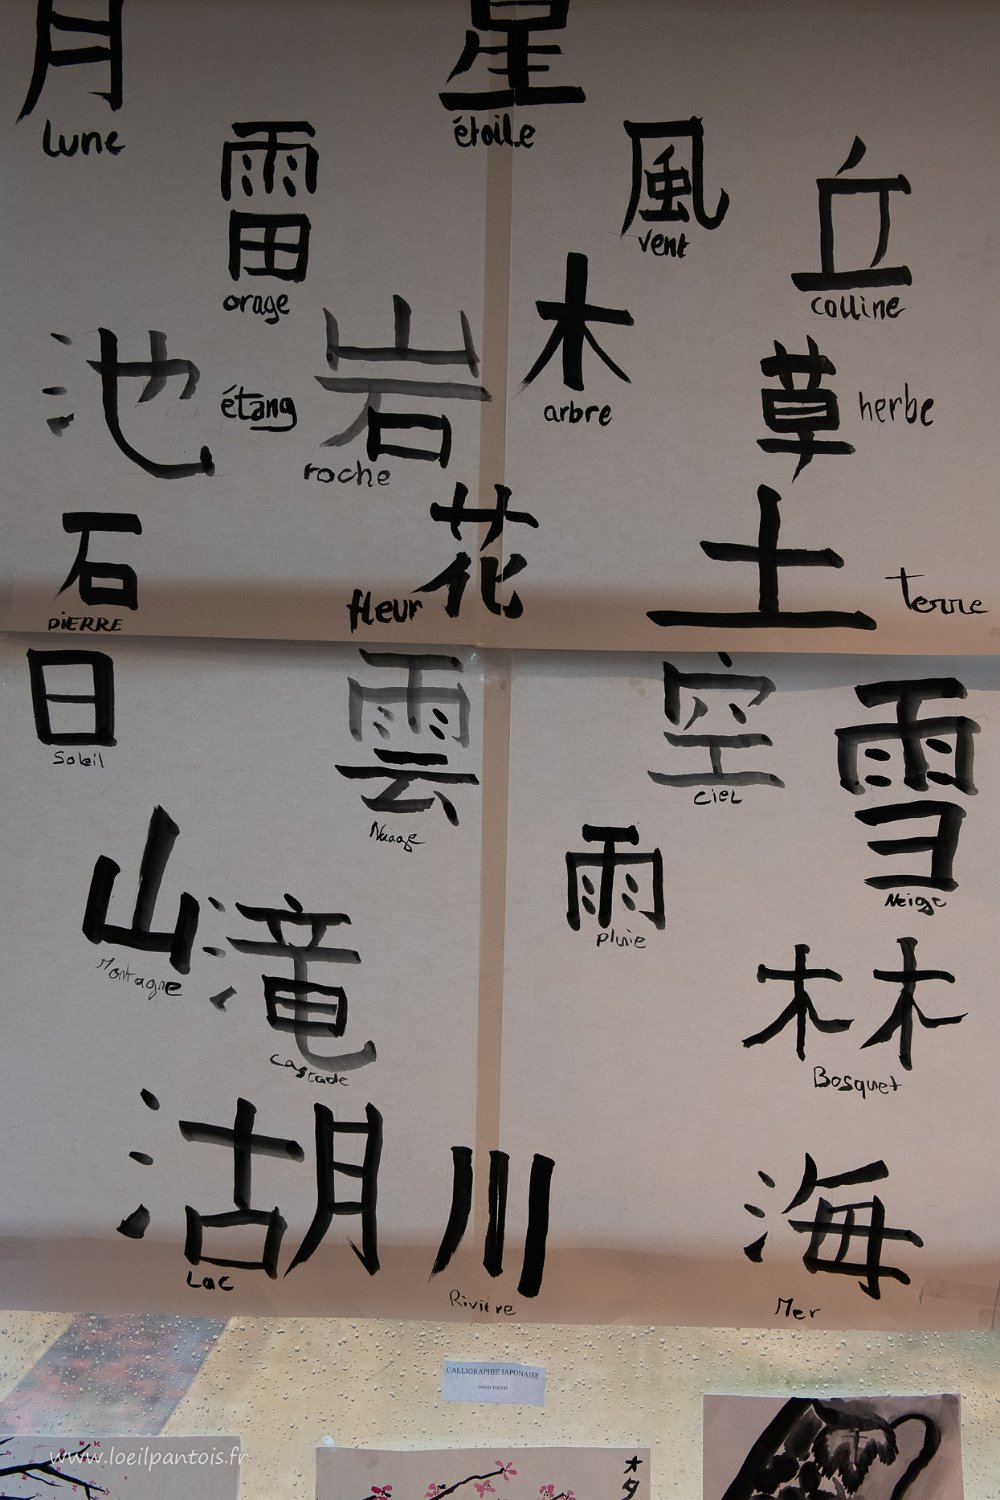 月
lune
星
étoile
雷
orage
風
vent
丘
colline
池
étang
岩
roche
木
arbre
草
herbe
石
PIERRE
花
fleur
土
terre
日
Soleil
雲
Nuage
空
CIEL
雪
Neige
山
Montagne
滝
cascade
雨
pluie
林
Bosquet
湖
Lac
川
Rivière
海
Mer
CALLIGRAPHIE JAPONAISE
www.loeilpantois.fr